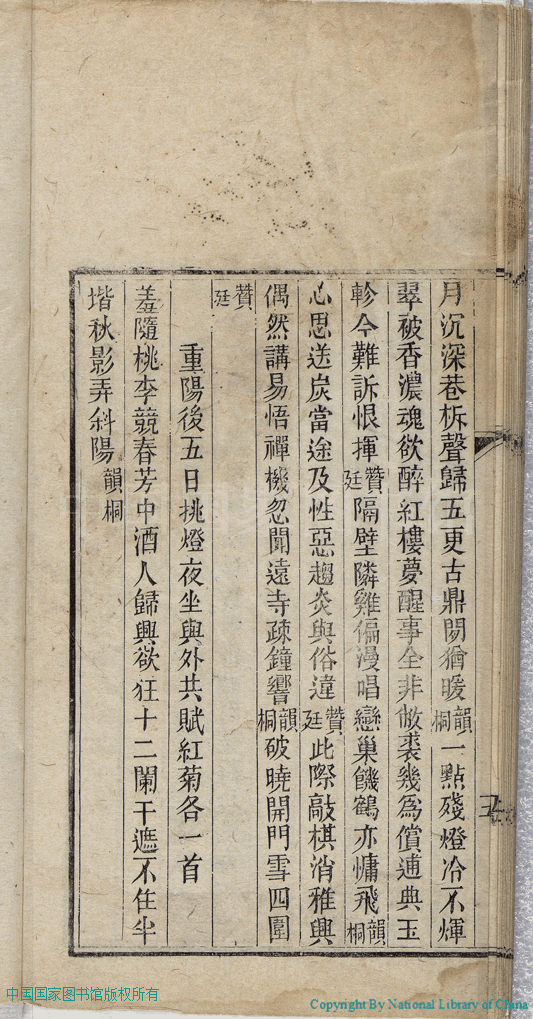 月沉深巷柝聲歸五更古鼎閒猶暖韻桐一點殘燈冷不煇
翠被香濃魂欲醉紅樓夢醒事全非敝裘幾為償逋典玉
軫今難訴恨揮贊廷隔壁隣雞偏漫唱戀巢饑鶴亦慵飛韻桐
心思送炭當途及性惡趨炎與俗違贊廷此際敲棋消雅興
偶然講易悟禪機忽聞遠寺疎鐘響韻桐破曉開門雪四圍
贊廷
重陽後五日挑燈夜坐與外共賦紅菊各一首
羞隨桃李競春芳中酒人歸興欲狂十二闌干遮不住半
堦秋影弄斜陽韻桐
中国国家图书馆版权所有
Copyright By National Library of China